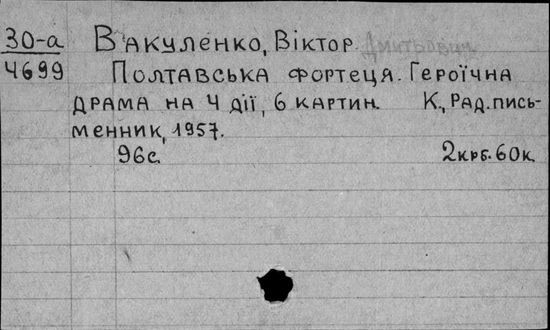 30-а Вакуленко, Віктор Дмитрович
4699 Полтавська фортеця. Героїчна
драма на 4 дії, 6 картин. К., Рад. пись-
менник, 1957.
96с. 2крб. 60к.